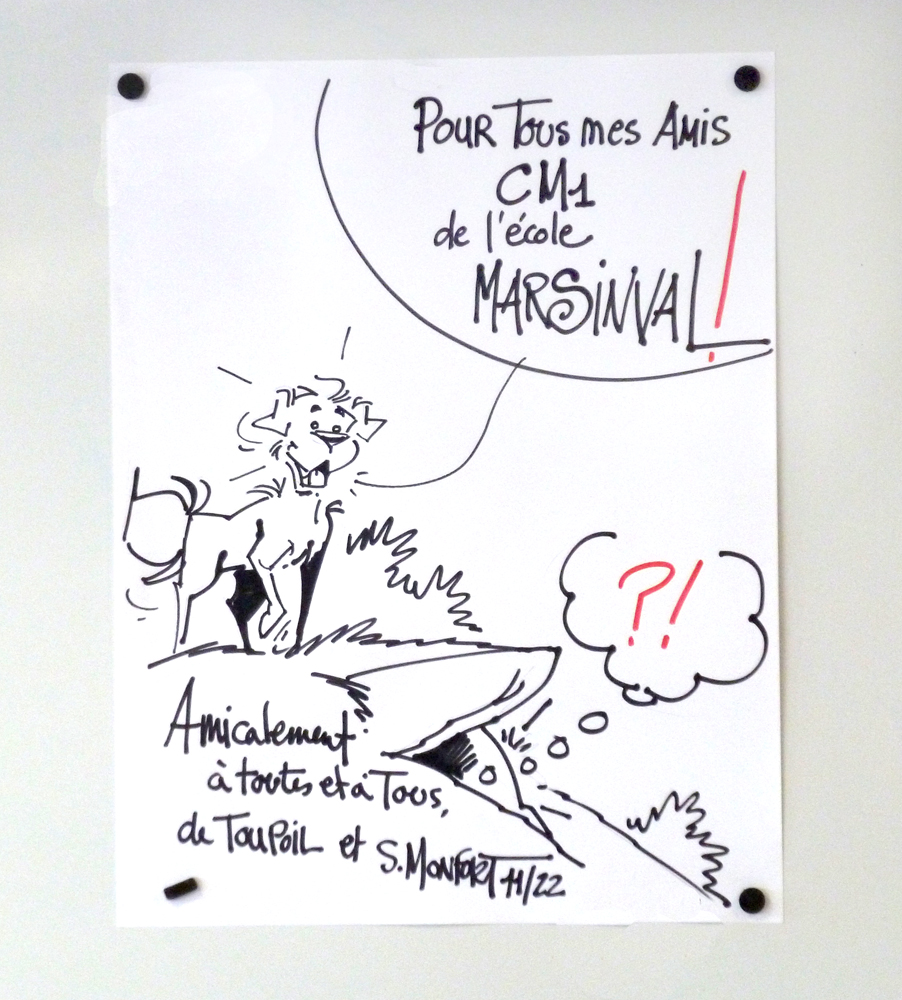 POUR TOUS mes AMIS
CM1
de l'école
MARSiNVAL!
?!
Amicalement
à toutes et à Tous,
de TOUPOIL et S. MONFORT 11/22